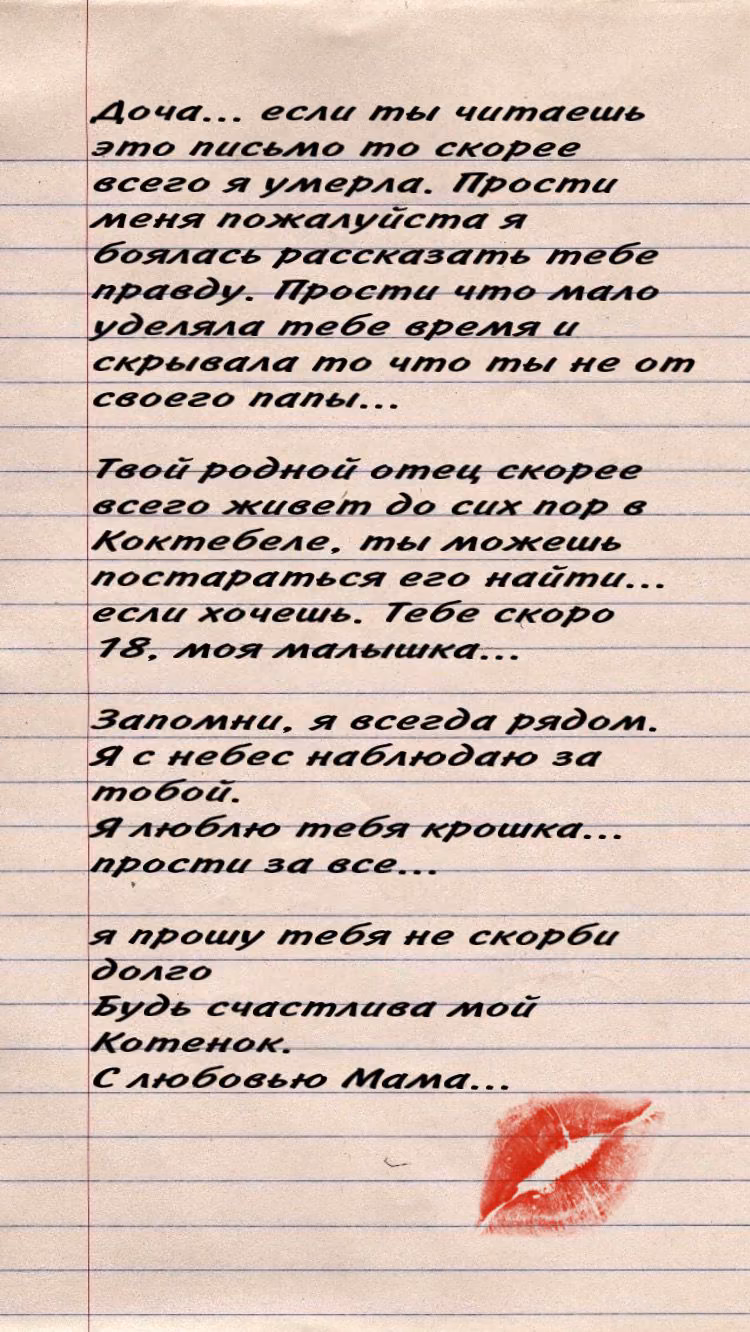 Доча... если ты читаешь
это письмо то скорее
всего я умерла. Прости
меня пожалуйста я
боялась рассказать тебе
правду. Прости что мало
уделяла тебе время и
скрывала то что ты не от
своего папы...
Твой родной отец скорее
всего живет до сих пор в
Коктебеле, ты можешь
постараться его найти...
если хочешь. Тебе скоро
18, моя малышка...
Запомни, я всегда рядом.
Я с небес наблюдаю за
тобой.
Я люблю тебя крошка...
прости за все...
я прошу тебя не скорби
долго
Будь счастлива мой
Котенок.
С любовью Мама...